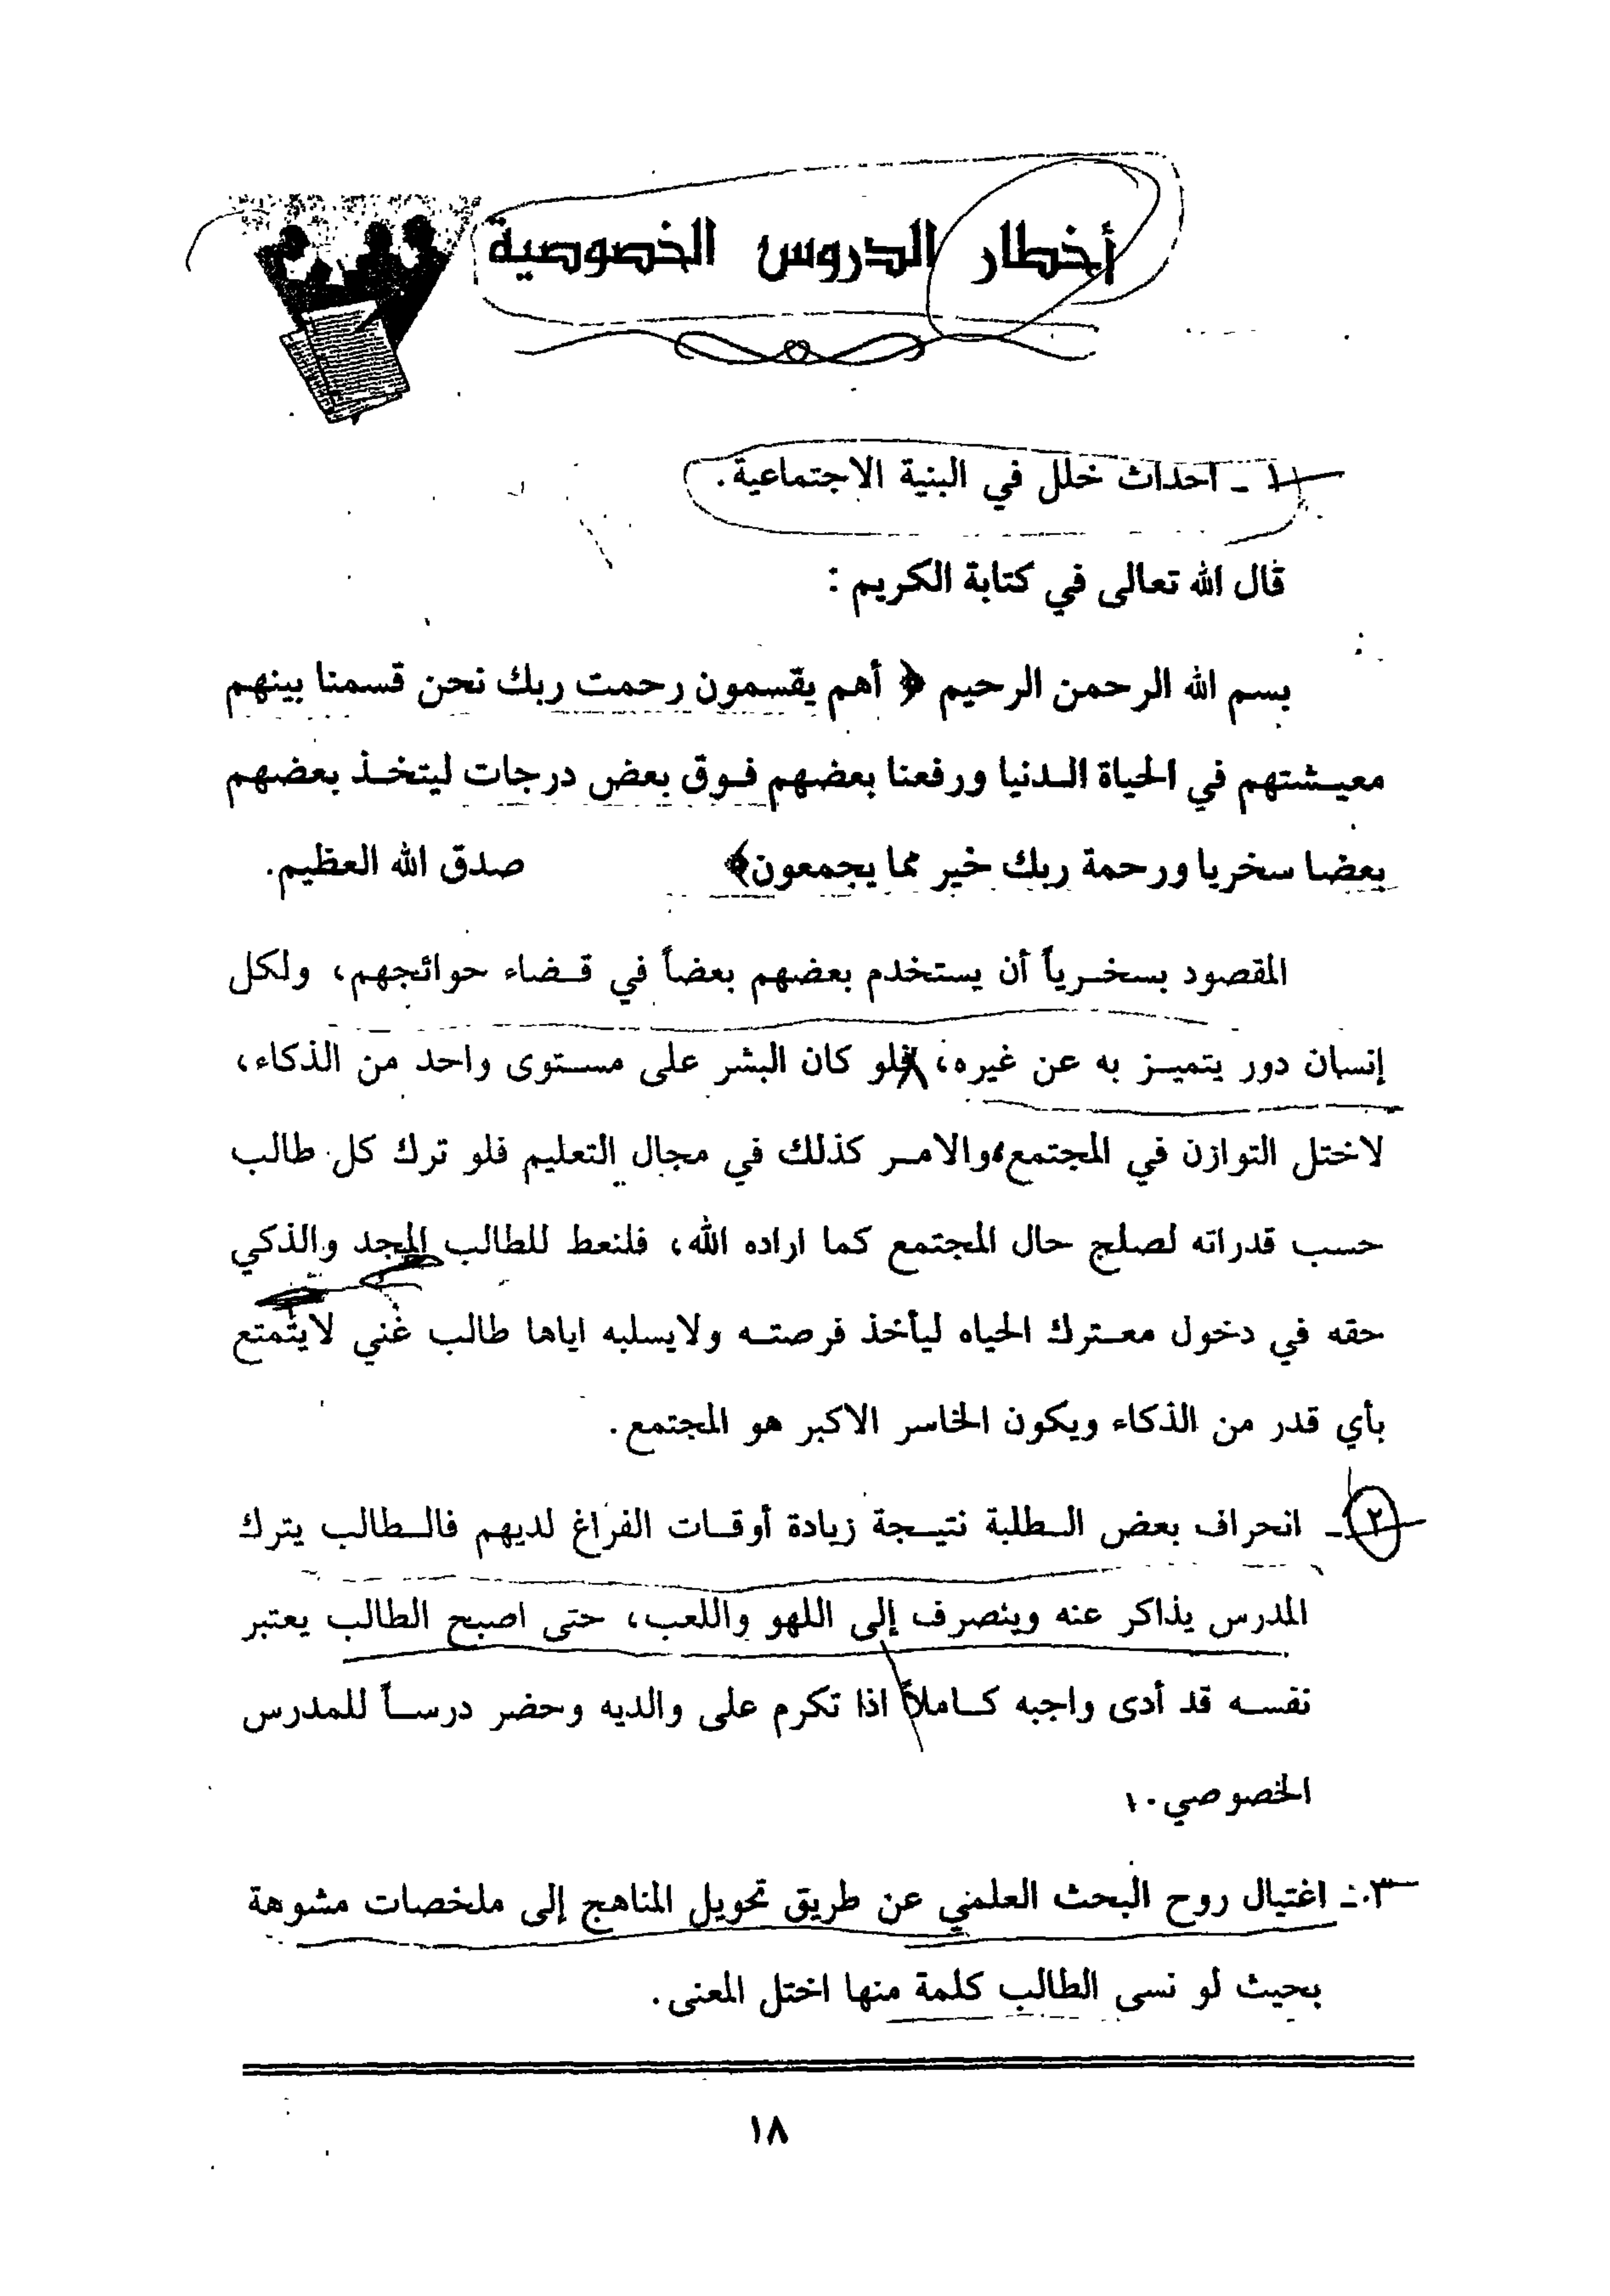 أخطار الدروس الخصوصية
١ - احداث خلل في البنية الاجتماعية.
قال الله تعالى في كتابة الكريم :
بسم الله الرحمن الرحيم ﴿ أهم يقسمون رحمت ربك نحن قسمنا بينهم
معيشتهم في الحياة الدنيا ورفعنا بعضهم فوق بعض درجات ليتخذ بعضهم
بعضا سخريا ورحمة ربك خير مما يجمعون﴾ صدق الله العظيم.
المقصود بسخرياً أن يستخدم بعضهم بعضاً في قضاء حوائجهم، ولكل
إنسان دور يتميز به عن غيره، فلو كان البشر على مستوى واحد من الذكاء،
لاختل التوازن في المجتمع، والامر كذلك في مجال التعليم فلو ترك كل طالب
حسب قدراته لصلح حال المجتمع كما اراده الله، فلنعط للطالب المجد والذكي
حقه في دخول معترك الحياه ليأخذ فرصته ولايسلبه اياها طالب غني لايتمتع
بأي قدر من الذكاء ويكون الخاسر الاكبر هو المجتمع.
٢ - انحراف بعض الطلبة نتيجة زيادة أوقات الفراغ لديهم فالطالب يترك
المدرس يذاكر عنه وينصرف إلى اللهو واللعب، حتى اصبح الطالب يعتبر
نفسه قد أدى واجبه كاملاً اذا تكرم على والديه وحضر درساً للمدرس
الخصوصي.
٣ - اغتيال روح البحث العلمي عن طريق تحويل المناهج إلى ملخصات مشوهة
بحيث لو نسى الطالب كلمة منها اختل المعنى.
١٨